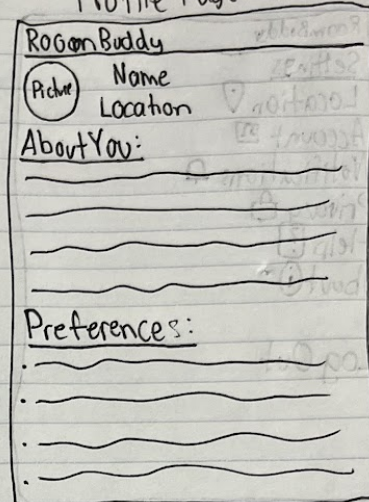 RoomBuddy
Picture
Name
Location
About You:
Preferences: